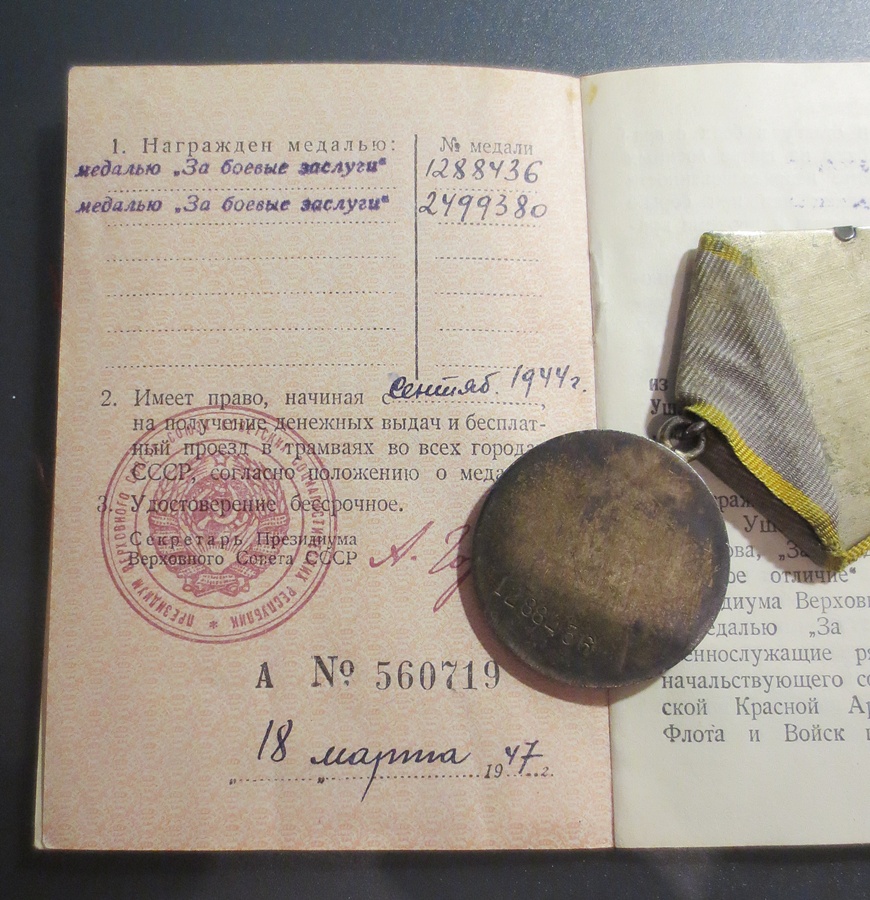 1. Награжден медалью:
№ медали
медалью „За боевые заслуги“ 1288436
медалью „За боевые заслуги“ 2499380
2. Имеет право, начиная с сентяб. 1944 г.,
на получение денежных выдач и бесплат-
ный проезд в трамваях во всех города
СССР, согласно положению о меда
3. Удостоверение бессрочное.
Секретарь Президиума
Верховного Совета СССР
А.
ПРЕЗИДИУМ ВЕРХОВНОГО СОВЕТА СОЮЗА СОВЕТСКИХ СОЦИАЛИСТИЧЕСКИХ РЕСПУБЛИК *
А № 560719
„18 „ марта 1947 г.
1288436
из
Уш
раж
Уш
ова, „За
ое отличие“
зидиума Верховн
едалью „За
еннослужащие ря
начальствующего со
ской Красной Ар
Флота и Войск